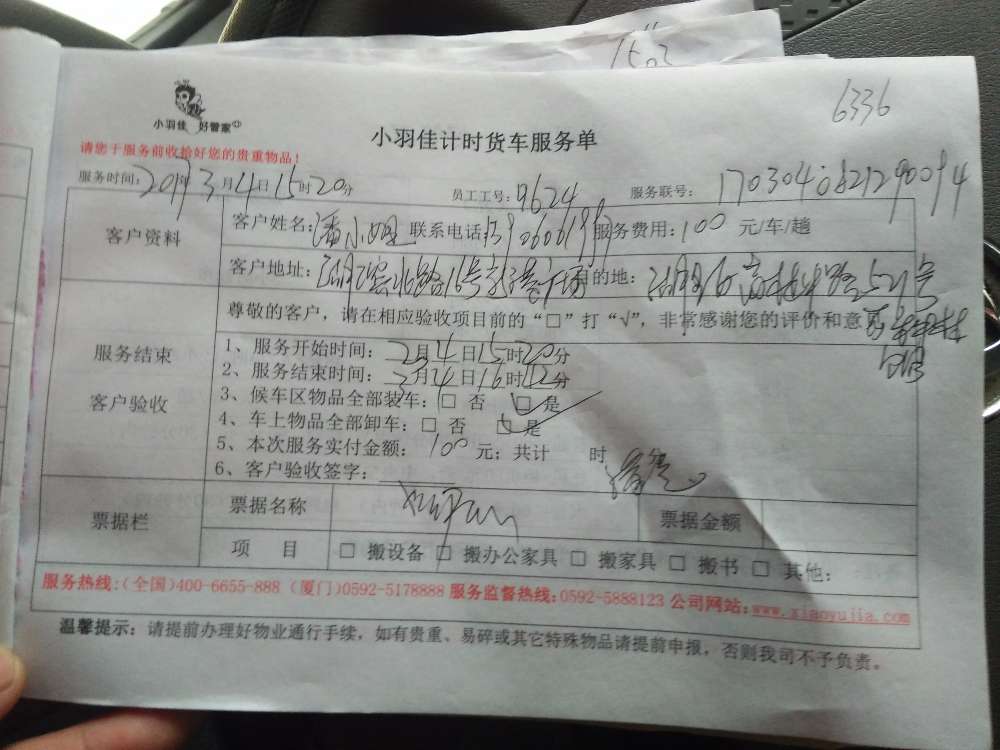 15.02
6336
小羽佳 好管家
小羽佳计时货车服务单
请您于服务前收拾好您的贵重物品！
服务时间：2017年3月4日15时20分 员工工号：9624 服务联号：1703040621290094
客户资料 客户姓名：潘小姐 联系电话： 服务费用：100 元/车/趟
客户地址：湖滨北路16号 目的地：湖里区 号
尊敬的客户，请在相应验收项目前的“□”打“√”，非常感谢您的评价和意见
服务结束
客户验收
1、服务开始时间：2月4日15时20分
2、服务结束时间：3月4日16时12分
3、候车区物品全部装车：□ 否 ☑ 是
4、车上物品全部卸车：□ 否 ☑ 是
5、本次服务实付金额：100元；共计 时
6、客户验收签字：
票据栏 票据名称 票据金额
项 目 □ 搬设备 □ 搬办公家具 □ 搬家具 □ 搬书 □ 其他：
服务热线：（全国）400-6655-888（厦门）0592-5178888 服务监督热线：0592-5888123 公司网站：www.xiaoyujia.com
温馨提示：请提前办理好物业通行手续，如有贵重、易碎或其它特殊物品请提前申报，否则我司不予负责。